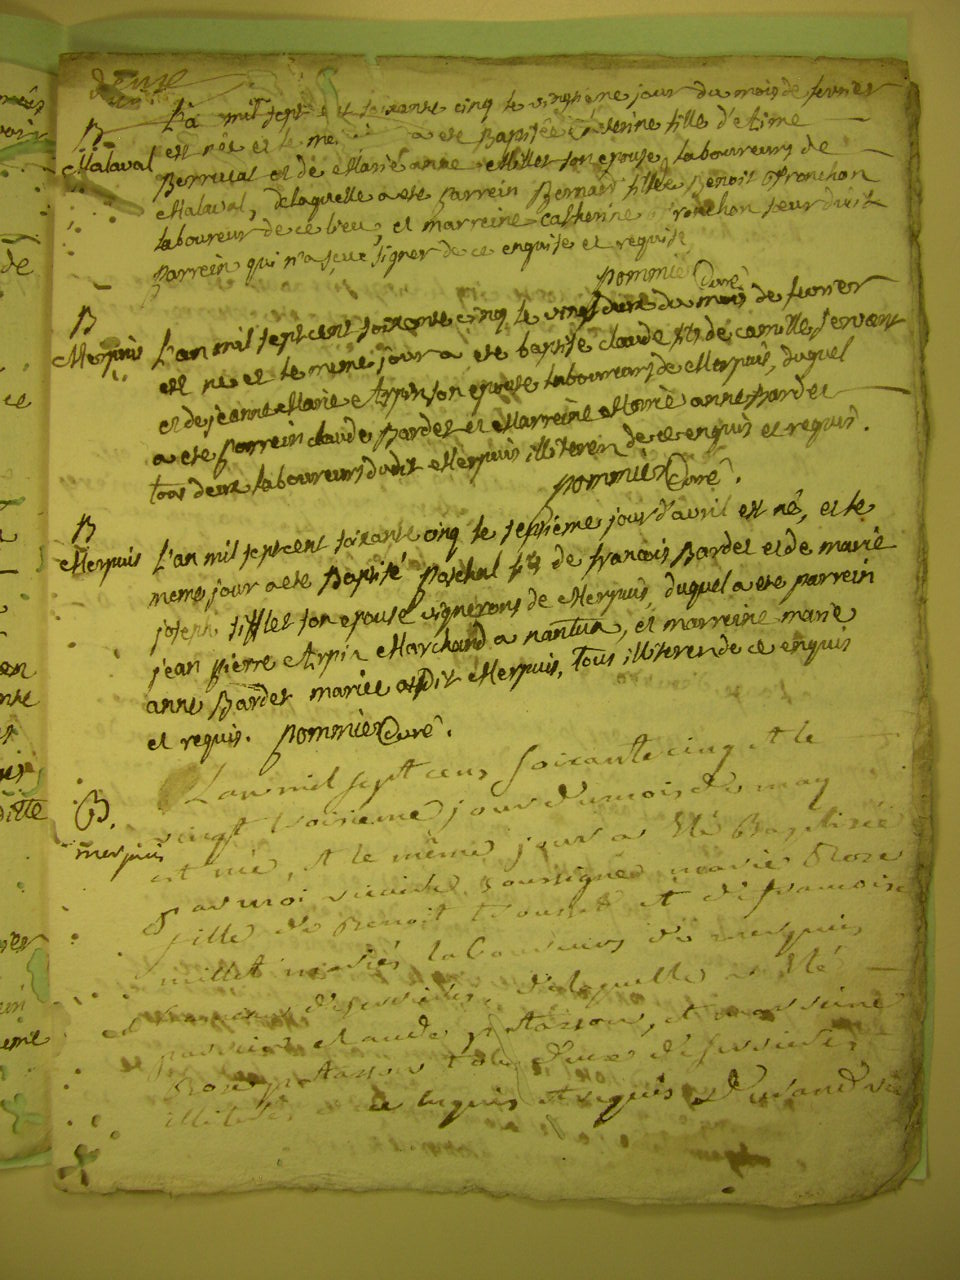 B
Malaval
L'a mil sept cent soixante cinq le vingtieme jour du mois de fevrier
est née et le me a été Baptisée Caterine fille d'Aime
Berrucat et de Marie anne Millet son epouse, laboureurs de
Malaval, delaquelle a ete parrein Bernard fils de Benoit ofronchon
laboureur de ce lieu, et marreine Catherine ofronchon seur dudit
parrein qui n'a sçeue signer de ce enquise et requise
pommier Curé
B
Merpuis
L'an mil sept cent soixante cinq le vingt deux du mois de fevrier
est né et le meme jour a ete baptise claude fils de camille servant
et de jeanne Marie Arpin son epouse laboureurs de Merpuis, duquel
a ete parrein claude Bardet et Marreine Marie anne Bardet
tous deux laboureurs dudit Merpuis illiterez de ce enquis et requis.
pommier Curé.
B
Merpuis
L'an mil sept cent soixante cinq le septieme jour d'avril est né, et le
meme jour a ete Baptisé paschal fils de francois Bardet et de marie
joseph sifflet son epouse vignerons de Merpuis, duquel a ete parrein
jean pierre Arpin Marchand a nantua, et marreine marie
anne Bardet mariee audit Merpuis, tous illiterez de ce enquis
et requis. pommier Curé.
B.
merpuis
L'an mil sept cens soixante cinq et le
vingt troisieme jour du mois de may
est née, et le même jour a été Baptisée
par moi vicaire soussigné marie Rose
fille de Benoit et de francoise
millet mariés laboureurs de merpuis
delaquelle a été
parrein claude, et marreine
Rose tous deux
illiterés de ce enquis et requis